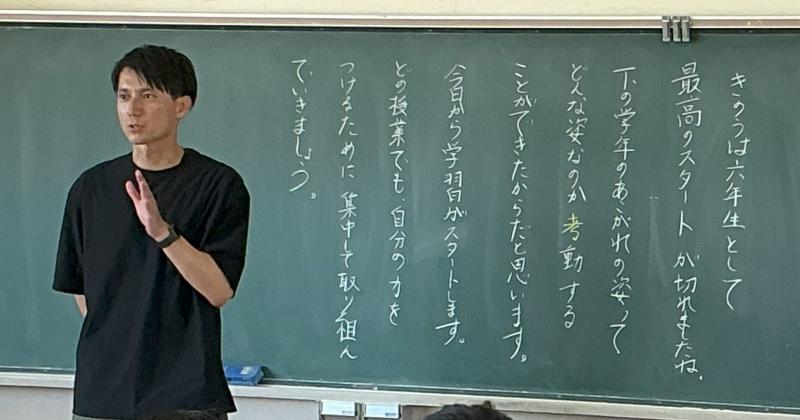 きのうは六年生として
最高のスタートが切れましたね。
下の学年のあこがれの姿って
どんな姿なのか考動する
ことができたからだと思います。
今日から学習がスタートします。
どの授業でも、自分の力を
つけるために集中して取り組ん
でいきましょう。